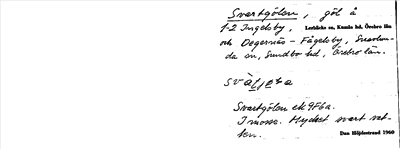 Svartgölen, göl å
1-2 Ingelsby, Lerbäcks sn, Kumla hd, Örebro län
och Dogernäs - Fågelsby, Snavlun-
da sn, Sundbo hd, Örebro län.
Svartgölen ek 9F6a.
I mosse. Mycket svart vat-
ten. Dan Höjdestrand 1960